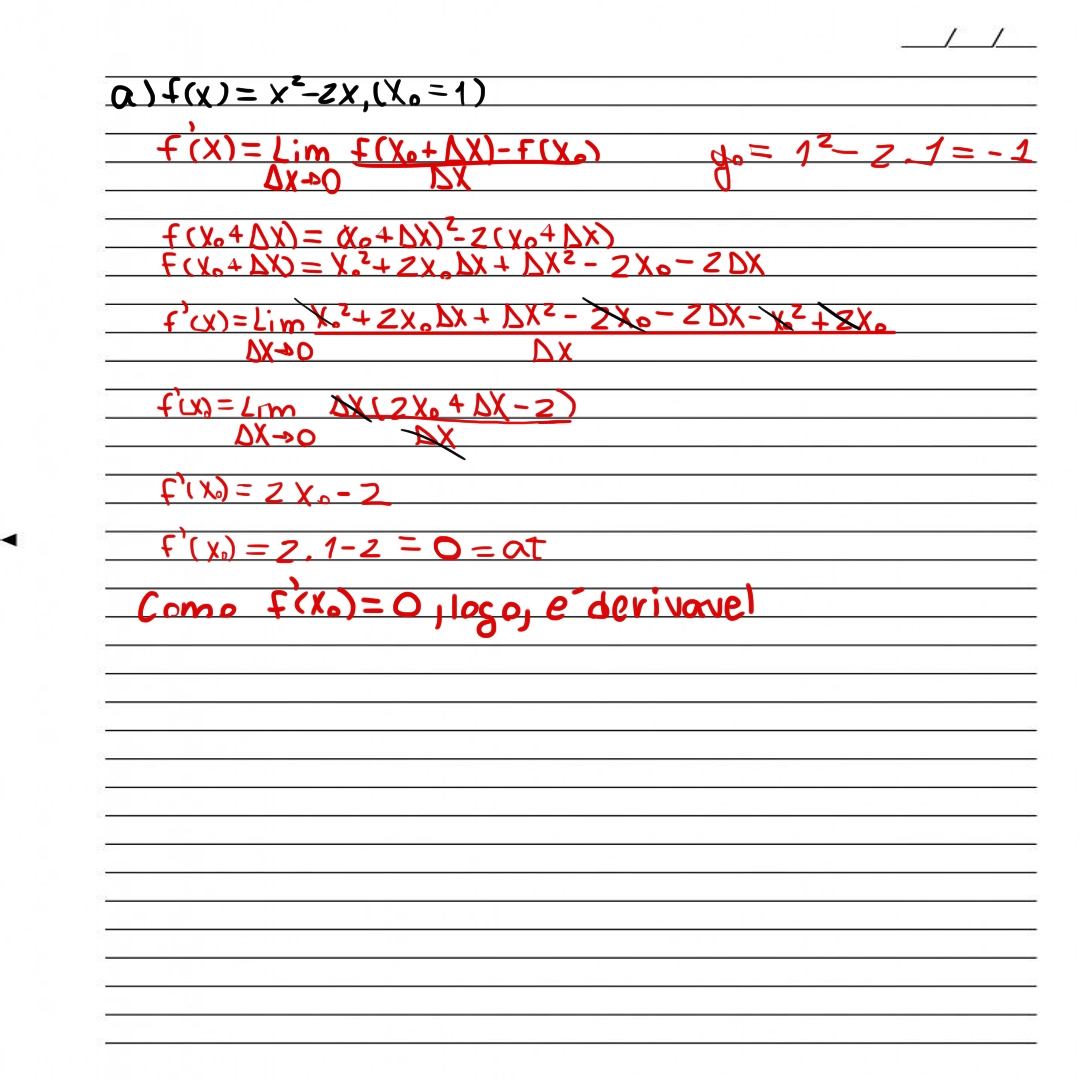 a) f(x) = x²-2x, (x₀ = 1)
f'(x) = Lim f(x₀+Δx)-f(x₀) y₀ = 1² - 2.1 = -1
Δx→0 Δx
f(x₀+Δx) = (x₀+Δx)²-2(x₀+Δx)
f(x₀+Δx) = x₀²+2x₀Δx+Δx²-2x₀-2Δx
f'(x) = Lim x₀²+2x₀Δx+Δx²-2x₀-2Δx-x₀²+2x₀
Δx→0 Δx
f'(x₀) = Lim Δx(2x₀+Δx-2)
Δx→0 Δx
f'(x₀) = 2x₀-2
f'(x₀) = 2.1-2 = 0 = at
Como f'(x₀)=0, logo, e´ derivavel